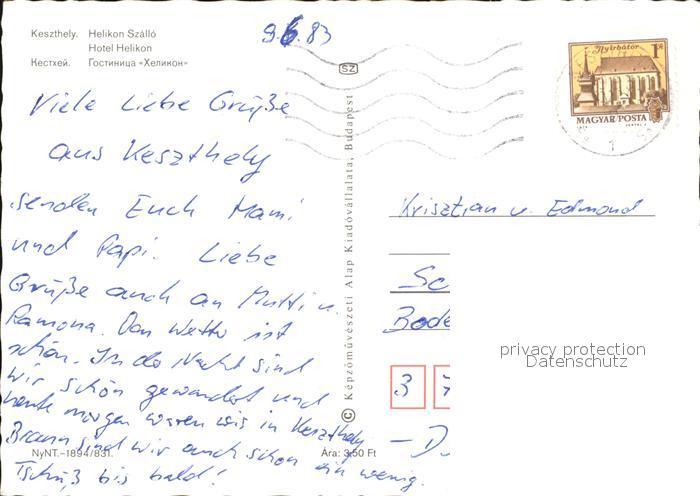 Keszthely. Helikon Szálló
Hotel Helikon
Кестхей. Гостиница «Хеликон»
9.6.83
SZ
Nyírbátor 1 Ft
MAGYAR POSTA
Viele Liebe Grüße
aus Keszthely
senden Euch Mami
und Papi. Liebe
Grüße auch an Mutti u.
Ramona. Das Wetter ist
schön. In der Nacht sind
wir schön gewandert und
heute morgen waren wir in Keszthely
Braun sind wir auch schon ein wenig.
Tschüß bis bald!
© Képzőművészeti Alap Kiadóvállalata, Budapest
NyNT.–1894/831.
Ára: 3,50 Ft
Krisztian u. Edmond
Sc
Bode
3 7
– D
privacy protection
Datenschutz